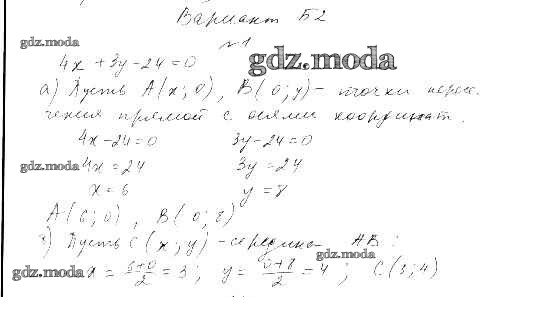 Вариант Б2
gdz.moda
№1
4x + 3y - 24 = 0
gdz.moda
а) Пусть A(x; 0), B(0; y) - точки пересе-
чения прямой с осями координат.
4x - 24 = 0 3y - 24 = 0
gdz.moda 4x = 24 3y = 24
x = 6 y = 8
A(6; 0), B(0; 8)
б) Пусть C(x; y) - середина AB:
gdz.moda
gdz.moda x = (6+0)/2 = 3; y = (0+8)/2 = 4; C(3; 4)